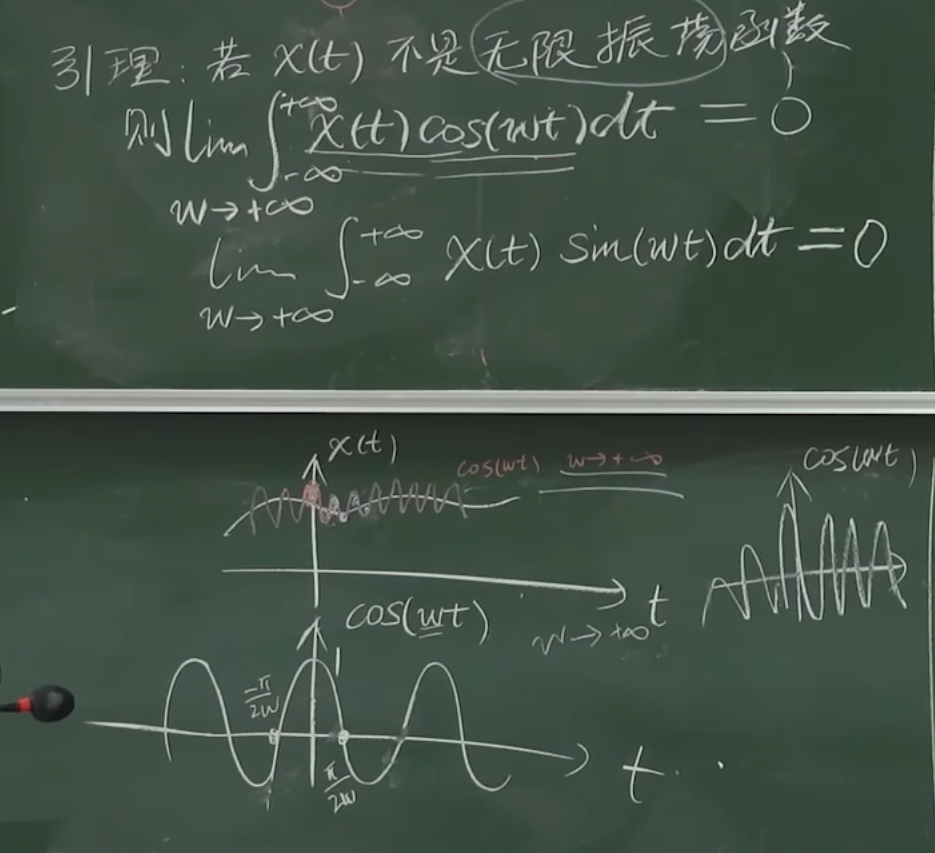 引理：若 x(t) 不是无限振荡函数
则 lim ∫ +∞ -∞ x(t)cos(wt)dt = 0
w→+∞
lim ∫ +∞ -∞ x(t) sin(wt)dt = 0
w→+∞
x(t)
cos(wt) w→+∞
cos(wt)
t
w→+∞
cos(wt)
1
-π/2w
π/2w
t